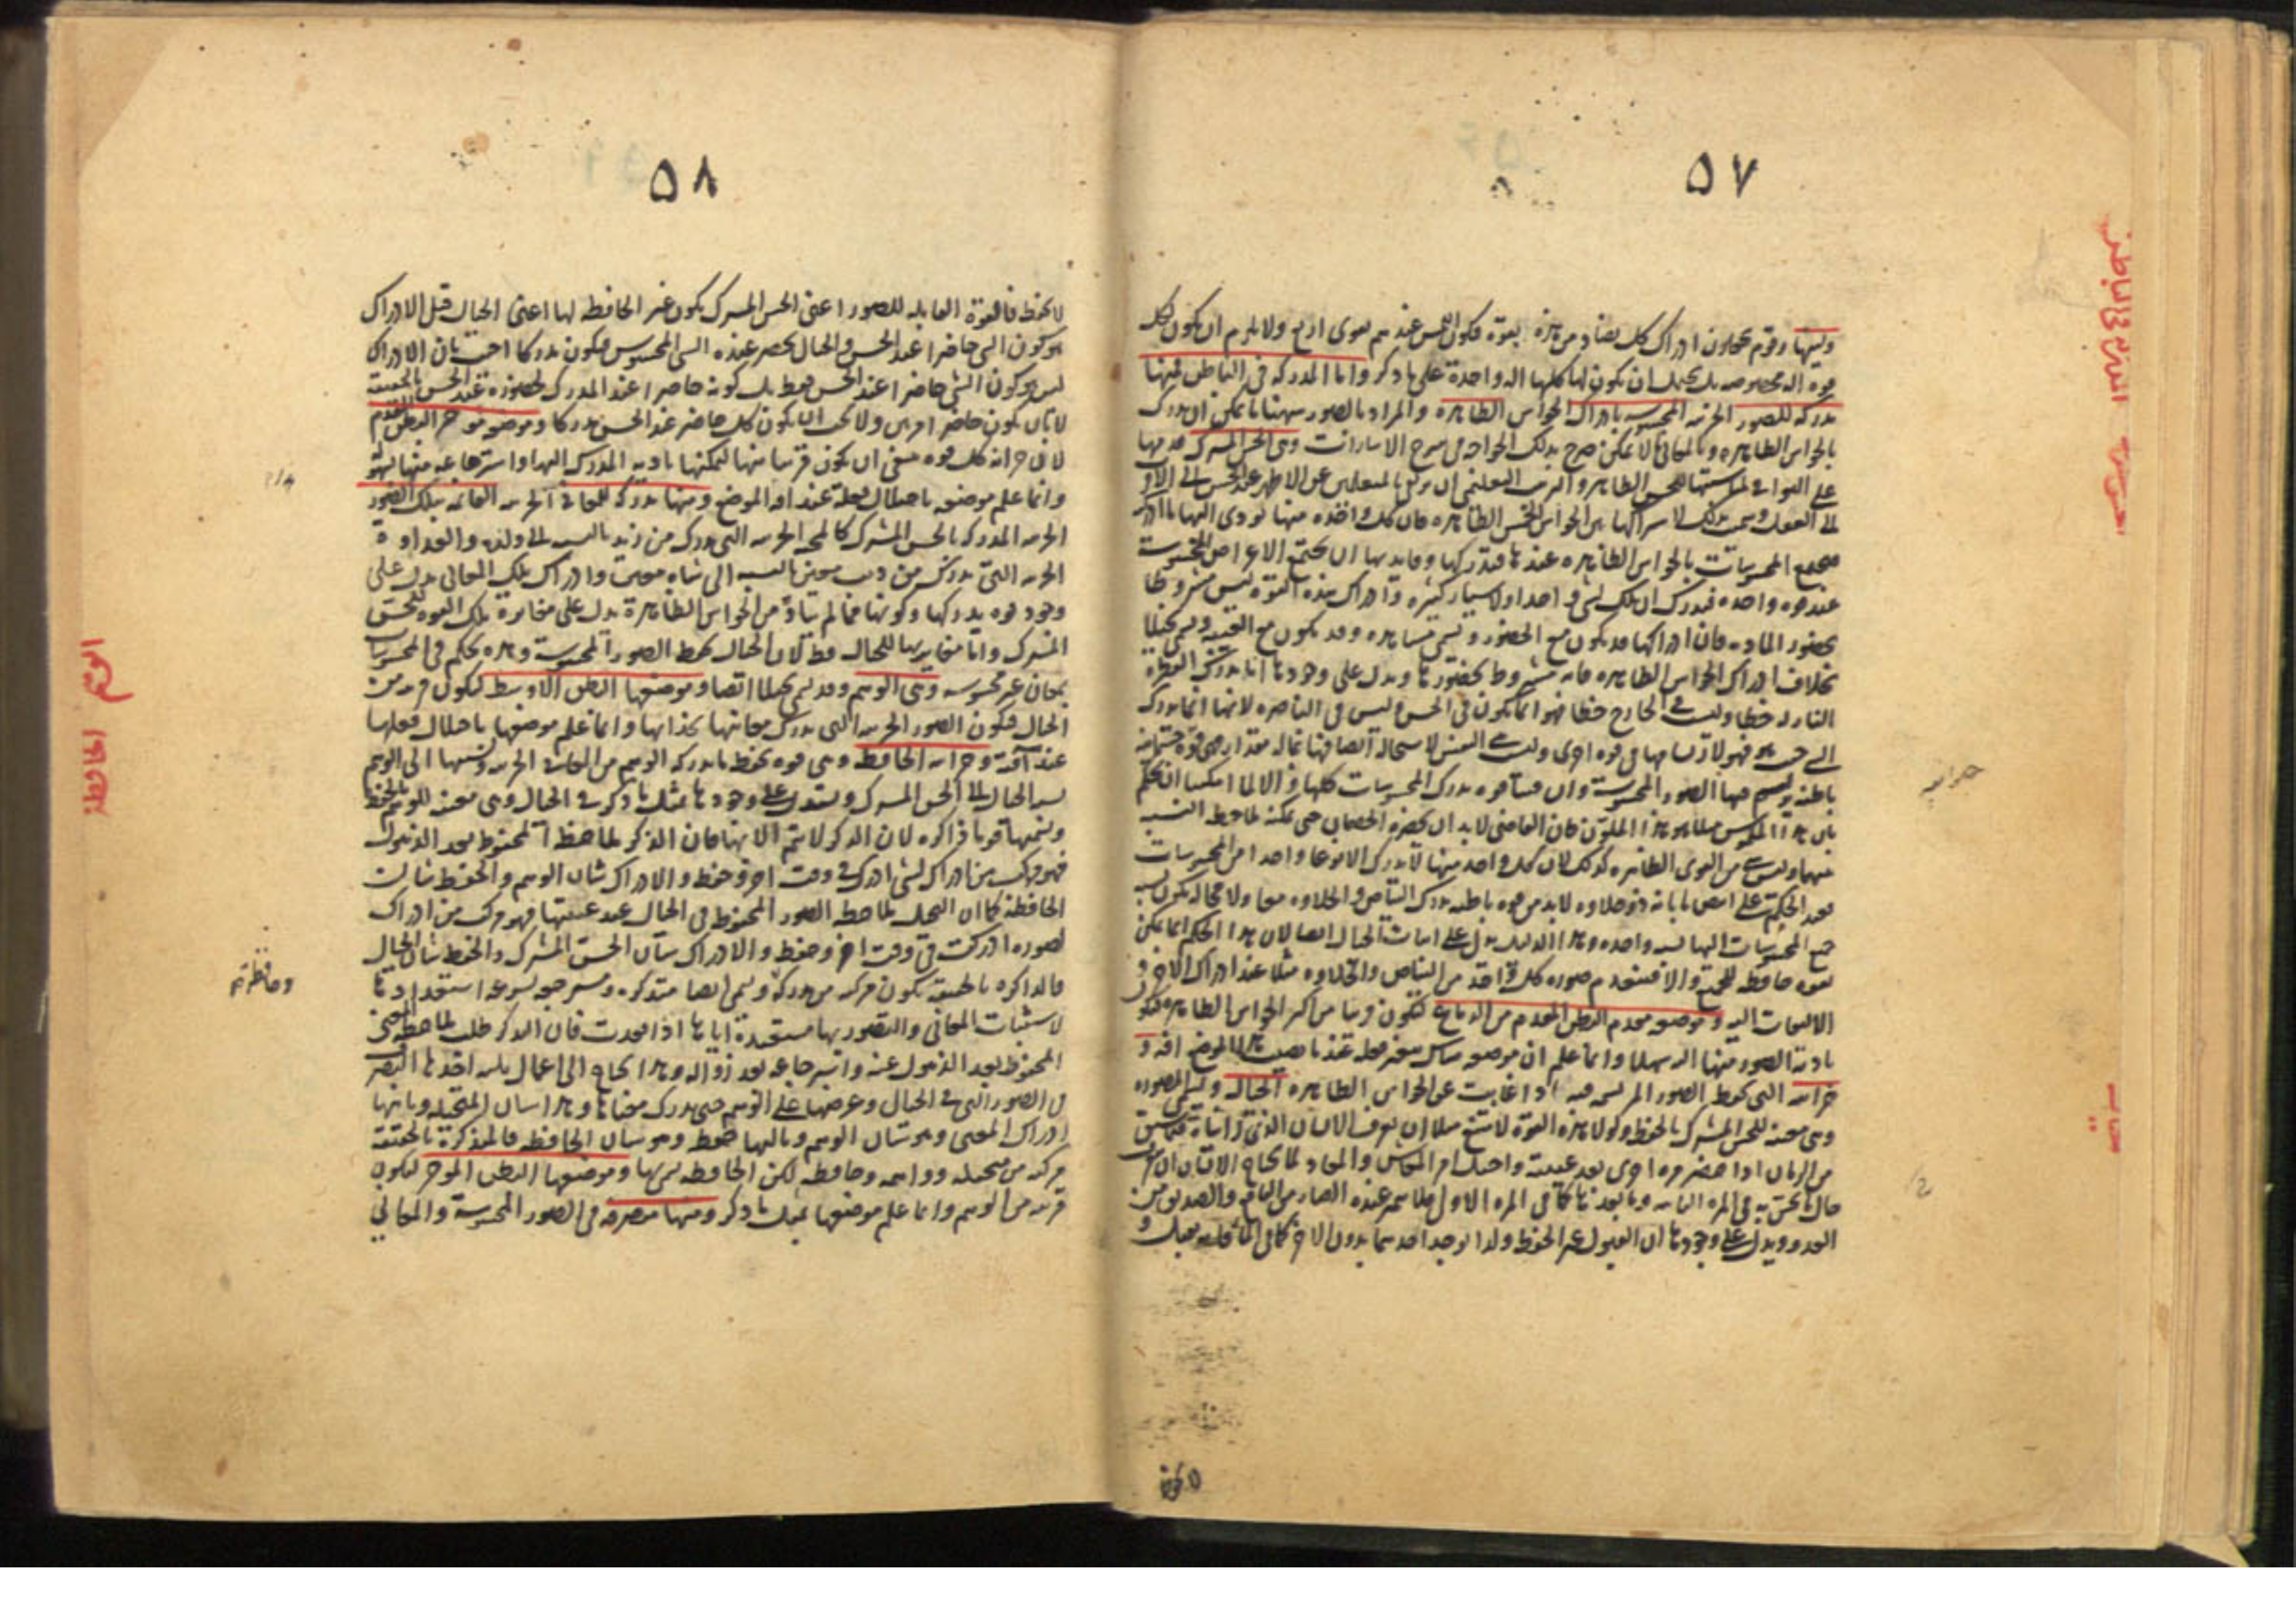 ٥٧
ولينها وقوم يجعلون ادراك كل تضاد من هذه بقوة فيكون اللمس عندهم بقوى اربع ولا يلزم ان يكون لكل
قوة آلة مخصوصة بل يحتمل ان يكون لها كلها آلة واحدة على ما ذكر واما المدركة في الباطن فمنها
مدركة للصور الجزئية المحسوسة بادراك الحواس الظاهرة والمراد بالصور ههنا ما يمكن ان يدرك
بالحواس الظاهرة وبالمعاني ما لا يمكن صرح بذلك الخواجه في شرح الاشارات وهي الحس المشترك
الى العقل وسميت بذلك لاشتراكها بين الحواس الخمس الظاهرة فان كل واحدة منها تؤدي اليها ما ادركته
مجمع المحسوسات بالحواس الظاهرة عندها فتدركها وفايدتها ان يجتمع الاعراض المحسوسة
عند قوة واحدة فتدرك ان تلك لشيء واحد او لاشياء كثيرة وادراك هذه القوة ليس مشروطا
بحضور المادة فان ادراكها قد يكون مع الحضور ويسمى مشاهدة وقد يكون مع الغيبة ويسمى تخيلا
بخلاف ادراك الحواس الظاهرة فانه مشروط بحضورها ويدل على وجودها انا ندرك القطرة
النازلة خطا وليست في الخارج خطا فهو انما يكون في الحس وليس في الباصرة لانها انما تدرك
الشيء حيث هو فهو لارتسامها في قوة اخرى وليست هي النفس لاستحالة
باطنة يرتسم فيها الصور المحسوسة وان فينا قوة تدرك المحسوسات كلها والا لما امكننا ان نحكم
بان هذا الملموس مثلا هو هذا الملون فان القاضي لا بد ان يحضره الخصمان حتى يمكنه ملاحظة النسبة
بينهما وليس شيء من القوى الظاهرة كذلك لان كل واحد منها لا يدرك الا نوعا واحدا من المحسوسات
فعند الحكم على ابيض ما بانه ذو حلاوة لا بد من قوة باطنة تدرك البياض والحلاوة معا ولا محالة يكون نسبة
جميع المحسوسات اليها نسبة واحدة وهذا الدليل يدل على اثبات الخيال ايضا لان هذا الحكم انما يمكن
بقوة حافظة للجميع والا فينعدم صورة كل واحد من البياض والحلاوة مثلا عند ادراك الآخر و
الالتفات اليه وموضعه مقدم البطن المقدم من الدماغ ليكون قريبا من اكثر الحواس الظاهرة فيكون
تأدية الصور منها اليه سهلا وانما علم ان موضعه ما يصيب هذا الموضع آفة و
خزانته التي تحفظ الصور المرتسمة فيه اذا غابت عن الحواس الظاهرة الخيال ويسمى المصورة
وهي معينة للحس المشترك بالحفظ ولولا هذه القوة لامتنع مثلا ان نعرف الانسان الذي رأيناه
من الزمان اذا حضر مرة اخرى بعد غيبته واختل امر المعاش والمعاد
حال ما يحس به في المرة الثانية وما بعدها كما في المرة الاولى فلا يتميز عنده الضار من النافع والصديق من
العدو ويدل على وجودها ان القبول غير الحفظ ولذا يوجد احدهما بدون الآخر كما في الماء فانه يقبل و
٥٨
لا يحفظ فالقوة القابلة للصور اعني الحس المشترك يكون غير الحافظة لها اعني الخيال قيل الادراك
هو كون الشيء حاضرا عند الحس والخيال يحضر عنده الشيء المحسوس فيكون مدركا اجيب بان الادراك
ليس هو كون الشيء حاضرا عند الحس فقط بل كونه حاضرا عند المدرك لحضوره عند الحس بالحقيقة
لا بان يكون حاضرا مرتين ولا يجب ان يكون كل حاضر عند الحس مدركا وموضعه مؤخر البطن المقدم
لان خزانة كل قوة ينبغي ان يكون قريبا منها ليمكنها تأدية المدرك اليها واسترجاعه منها بسهولة
وانما علم موضعه باختلال فعله عند آفة الموضع ومنها مدركة للمعاني الجزئية القائمة بتلك الصور
الجزئية المدركة بالحس المشترك كالمحبة الجزئية التي تدرك من زيد بالنسبة الى ولده والعداوة
الجزئية التي تدرك من ذئب معين بالنسبة الى شاة معينة وادراك تلك المعاني يدل على
وجود قوة تدركها وكونها مما لم يتأد من الحواس الظاهرة يدل على مغايرة تلك القوة للحس
المشترك واما مغايرتها للخيال فظ لان الخيال تحفظ الصور المحسوسة وهذه تحكم في المحسوسات
بمعان غير محسوسة وهي الوهم وقد يسمى تخيلا ايضا وموضعها البطن الاوسط ليكون قريبة من
الخيال فيكون الصور الجزئية التي تدرك معانيها بحذائها وانما علم موضعها باختلال فعلها
عند آفته وخزانته الحافظة وهي قوة تحفظ ما يدركه الوهم من المعاني الجزئية ونسبتها الى الوهم
نسبة الخيال الى الحس المشترك ويستدل على وجودها بمثل ما ذكر في الخيال وهي معينة للوهم بالحفظ
ويسميها قوم ذاكرة لان الذكر لا يتم الا بها فان الذكر ملاحظة المحفوظ بعد الذهول
فهو مركب من ادراك لشيء ادرك في وقت آخر وحفظ والادراك شان الوهم والحفظ شان
الحافظة كما ان التخيل ملاحظة الصور المحفوظة في الخيال عند غيبتها فهو مركب من ادراك
لصورة ادركت في وقت آخر وحفظ والادراك شان الحس المشترك والحفظ شان الخيال
فالذاكرة بالحقيقة يكون مركبة من مدركة وحافظة ويسمى ايضا متذكرة ومسترجعة لسرعة استعدادها
لاستثبات المعاني والتصور بها مستعيدة اياها اذا فقدت فان الذكر طلب ملاحظة المعنى
المحفوظ بعد الذهول عنه واسترجاعه بعد زواله وهذا يحتاج الى اعمال ثلثة احدها التصفح
في الصور التي في الخيال وعرضها على الوهم حتى يدرك معناها وهذا شان المتخيلة وثانيها
ادراك المعنى وهو شان الوهم وثالثها حفظ وهو شان الحافظة فالمذكرة بالحقيقة
مركبة من متخيلة وواهمة وحافظة لكن الحافظة وموضعها البطن المؤخر ليكون
قريبة من الوهم وانما علم موضعها بمثل ما ذكر ومنها متصرفة في الصور المحسوسة والمعاني
الوهم
الحافظة